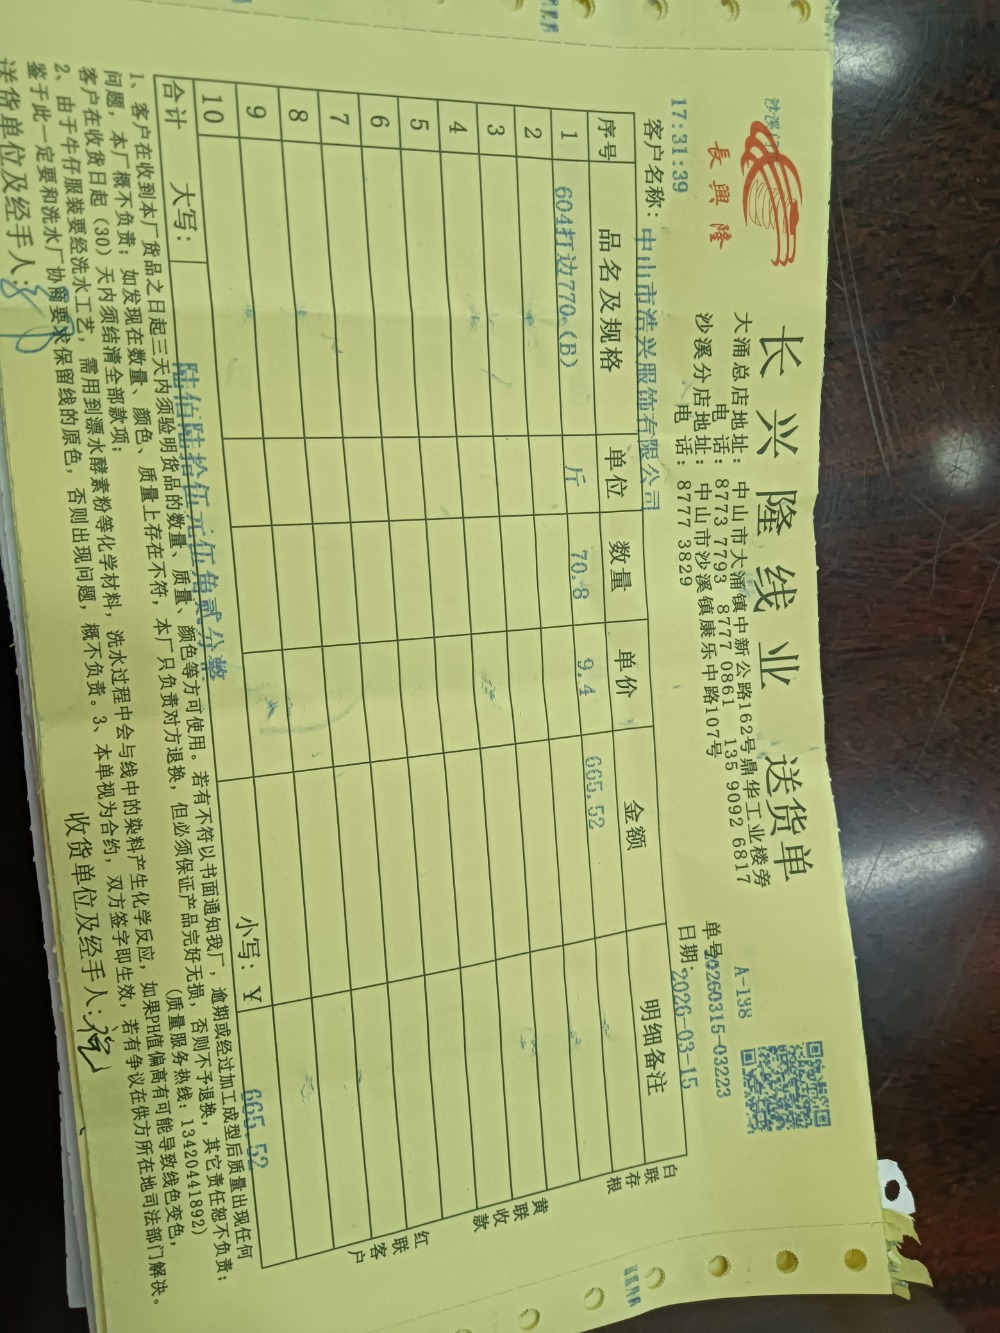 長興隆
长兴隆线业 送货单
大涌总店地址：中山市大涌镇中新公路162号鼎华工业楼旁
电 话：8773 7793 8777 0861 135 9092 6817
沙溪分店地址：中山市沙溪镇康乐中路107号
电 话：8777 3829
A-138
单号：20260315-03223
日期：2026-03-15
17:31:39
客户名称：中山市浩兴服饰有限公司
序号 品名及规格 单位 数量 单价 金额 明细备注
1 604打边770（B） 斤 70.8 9.4 665.52
2
3
4
5
6
7
8
9
10
合计 大写：陆佰陆拾伍元伍角贰分整 小写：￥ 665.52
白联存根
黄联收款
红联客户
1、客户在收到本厂货品之日起三天内须验明货品的数量、质量、颜色等方可使用。若有不符以书面通知我厂，逾期或经过加工成型后质量出现任何
问题，本厂概不负责；如发现在数量、颜色、质量上存在不符，本厂只负责对方退换，但必须保证产品完好无损，否则不予退换，其它责任恕不负责；
客户在收货日起（30）天内须结清全部款项；（质量服务热线：13420441892）
2、由于牛仔服装要经洗水工艺，需用到漂水酵素粉等化学材料，洗水过程中会与线中的染料产生化学反应，如果PH值偏高有可能导致线色变色，
鉴于此一定要和洗水厂协商要求保留线的原色，否则出现问题，概不负责。3、本单视为合约，双方签字即生效，若有争议在供方所在地司法部门解决。
送货单位及经手人： 收货单位及经手人：